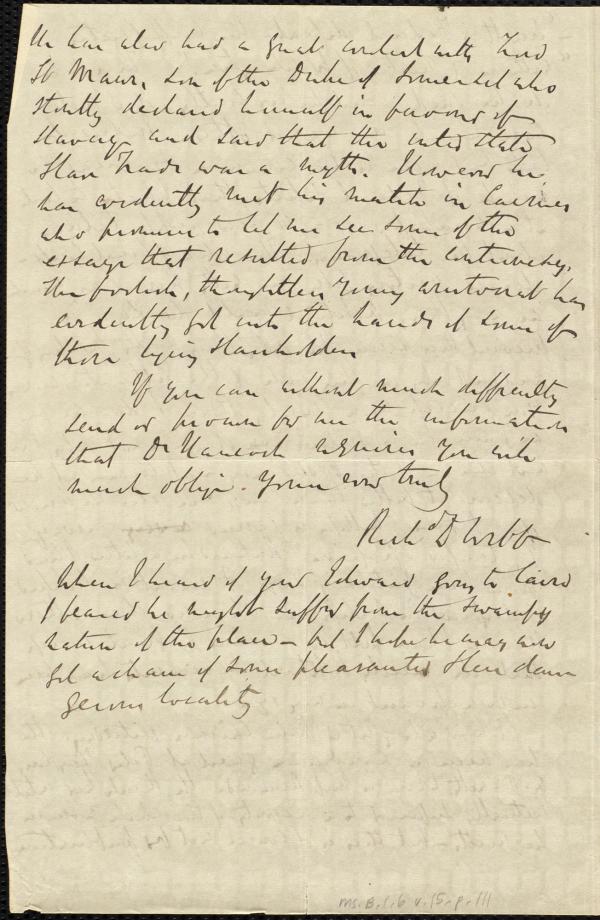 He has also had a great contest with Lord
St Maur, son of the Duke of Somerset who
stoutly declared himself in favour of
slavery and said that the inter State
Slave Trade was a myth. However he
has evidently met his match in Cairnes
who promises to let me see some of the
essays that resulted from the controversy.
The foolish, thoughtless young aristocrat has
evidently got into the hands of some of
those lying slaveholders
If you can without much difficulty
send or procure for me the information
that Dr Hancock requires you will
much oblige. Yours ever truly
Richd D Webb
When I heard of your Edward going to Cairo
I feared he might suffer from the swampy
nature of the place – but I hope he may now
get a chance of some pleasanter & less dan
gerous locality
Ms. B.1.6 v.15. p.111